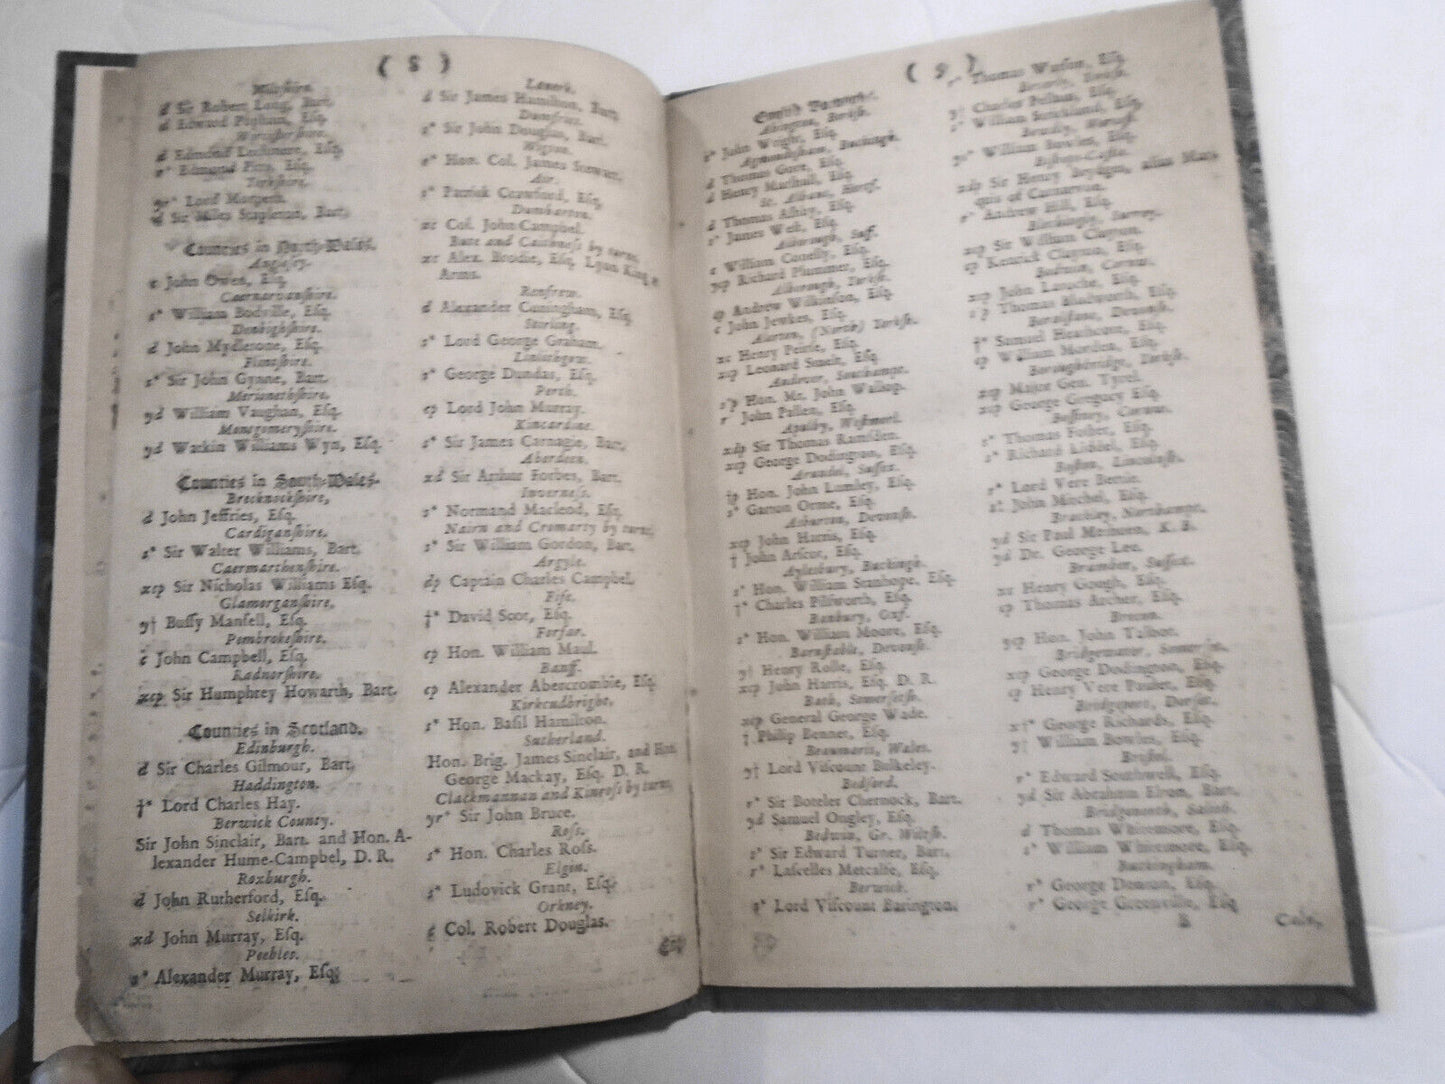 ( 8 )
Wiltshire.
d Sir Robert Long, Bart.
d Edward Popham, Esq.
Worcestershire.
d Edmund Lechmere, Esq.
r* Edmund Pitts, Esq.
Yorkshire.
yr* Lord Morpeth.
d Sir Miles Stapleton, Bart.
Counties in North-Wales.
Anglesey.
c John Owen, Esq.
Caernarvanshire.
s* William Bodville, Esq.
Denbighshire.
d John Mydletone, Esq.
Flintshire.
s* Sir John Gynne, Bart.
Merionethshire.
yd William Vaughan, Esq.
Montgomeryshire.
yd Watkin Williams Wyn, Esq.
Counties in South-Wales.
Brecknockshire,
d John Jeffries, Esq.
Cardiganshire.
s* Sir Walter Williams, Bart.
Caermarthenshire.
xcp Sir Nicholas Williams Esq.
Glamorganshire,
y† Bussy Mansell, Esq.
Pembrokeshire,
c John Campbell, Esq.
Radnorshire.
xcp Sir Humphrey Howarth, Bart.
Counties in Scotland.
Edinburgh.
d Sir Charles Gilmour, Bart.
Haddington.
†* Lord Charles Hay.
Berwick County.
Sir John Sinclair, Bart. and Hon. A-
lexander Hume-Campbel, D. R.
Roxburgh.
d John Rutherford, Esq.
Selkirk.
xd John Murray, Esq.
Peebles.
s* Alexander Murray, Esq.
Lanerk.
d Sir James Hamilton, Bart.
Dumfries.
s* Sir John Douglas, Bart.
Wigton.
s* Hon. Col. James Stewart.
Air.
s* Patrick Crawford, Esq.
Dumbarton.
xc Col. John Campbel.
Bute and Caithness by turns.
xc Alex. Brodie, Esq. Lyon King at
Arms.
Renfrew.
d Alexander Cuningham, Esq.
Sterling.
s* Lord George Graham.
Linlithgow.
s* George Dundas, Esq.
Perth.
cp Lord John Murray.
Kincardine.
s* Sir James Carnagie, Bart.
Aberdeen.
xd Sir Arthur Forbes, Bart.
Inverness.
s* Normand Macleod, Esq.
Nairn and Cromarty by turns.
s* Sir William Gordon, Bart.
Argyle.
dp Captain Charles Campbel.
Fife.
†* David Scot, Esq.
Forfar.
cp Hon. William Maul.
Banff.
cp Alexander Abercrombie, Esq.
Kirkcudbright.
s* Hon. Basil Hamilton.
Sutherland.
Hon. Brig. James Sinclair, and Hon.
George Mackay, Esq. D. R.
Clackmannan and Kinross by turns.
yr* Sir John Bruce.
Ross.
s* Hon. Charles Ross.
Elgin.
s* Ludovick Grant, Esq.
Orkney.
g Col. Robert Douglas.
( 9 )
English Boroughs.
Abington, Berksh.
s* John Wright, Esq.
Agmundesham, Buckingh.
d Thomas Gore, Esq.
d Henry Marshall, Esq.
St. Albans, Hertf.
d Thomas Ashby, Esq.
s* James West, Esq.
Alborough, Suff.
c William Conolly, Esq.
ycp Richard Plummer, Esq.
Alborough, Yorksh.
cp Andrew Wilkinson, Esq.
c John Jewkes, Esq.
Alerton, (North) Yorksh.
xc Henry Peirse, Esq.
xcp Leonard Smelt, Esq.
Andover, Southampt.
s*p Hon. Mr. John Wallop.
r* John Pollen, Esq.
Apulby, Westmorl.
xdp Sir Thomas Ramsden.
xcp George Dodington, Esq.
Arundel, Sussex.
†p Hon. John Lumley, Esq.
s* Garton Orme, Esq.
Asburton, Devonsh.
xcp John Harris, Esq.
† John Arscot, Esq.
Aylesbury, Buckingh.
s* Hon. William Stanhope, Esq.
†* Charles Pilsworth, Esq.
Banbury, Oxf.
s* Hon. William Moore, Esq.
Barnstable, Devonsh.
y† Henry Rolle, Esq.
xcp John Harris, Esq. D. R.
Bath, Somersetsh.
xcp General George Wade.
† Philip Bennet, Esq.
Beaumaris, Wales.
y† Lord Viscount Bulkeley.
Bedford.
r* Sir Boteler Chernock, Bart.
yd Samuel Ongley, Esq.
Bedwin, Gr. Wiltsh.
s* Sir Edward Turner, Bart.
r* Lascelles Metcalfe, Esq.
Berwick.
s* Lord Viscount Barington.
r* Thomas Watson, Esq.
Beverly, Yorksh.
y† Charles Pelham, Esq.
s* William Strickland, Esq.
Bewdly, Worcest.
yr* William Bowles, Esq.
Bishops-Castle.
xdp Sir Henry Brydges, alias Mar-
quis of Carnarvon.
s* Andrew Hill, Esq.
Bletchingly, Surrey.
xcp Sir William Clayton.
cp Kenrick Clayton, Esq.
Bodmin, Cornw.
xcp John Laroche, Esq.
s*p Thomas Bludworth, Esq.
Beralstone, Devonsh.
†* Samuel Heathcote, Esq.
cp William Morden, Esq.
Boroughbridge, Yorksh.
xcp Major Gen. Tyrel.
xcp George Gregory Esq.
Bossiney, Cornw.
s* Thomas Foster, Esq.
s* Richard Liddel, Esq.
Boston, Lincolnsh.
s* Lord Vere Bertie.
s† John Mitchel, Esq.
Brackley, Northampt.
yd Sir Paul Methuen, K. B.
yd Dr. George Lee.
Bramber, Sussex.
xc Henry Gough, Esq.
cp Thomas Archer, Esq.
Brecon.
ycp Hon. John Talbot.
Bridgewater, Somersetsh.
xcp George Dodington, Esq.
cp Henry Vere Poulet, Esq.
Bridgeport, Dorset.
x†* George Richards, Esq.
y† William Bowles, Esq.
Bristol.
r* Edward Southwell, Esq.
yd Sir Abraham Elton, Bart.
Bridgenorth, Salish.
d Thomas Whitmore, Esq.
s* William Whitmore, Esq.
Buckingham.
r* George Denton, Esq.
r* George Greenville, Esq.
B Caln,